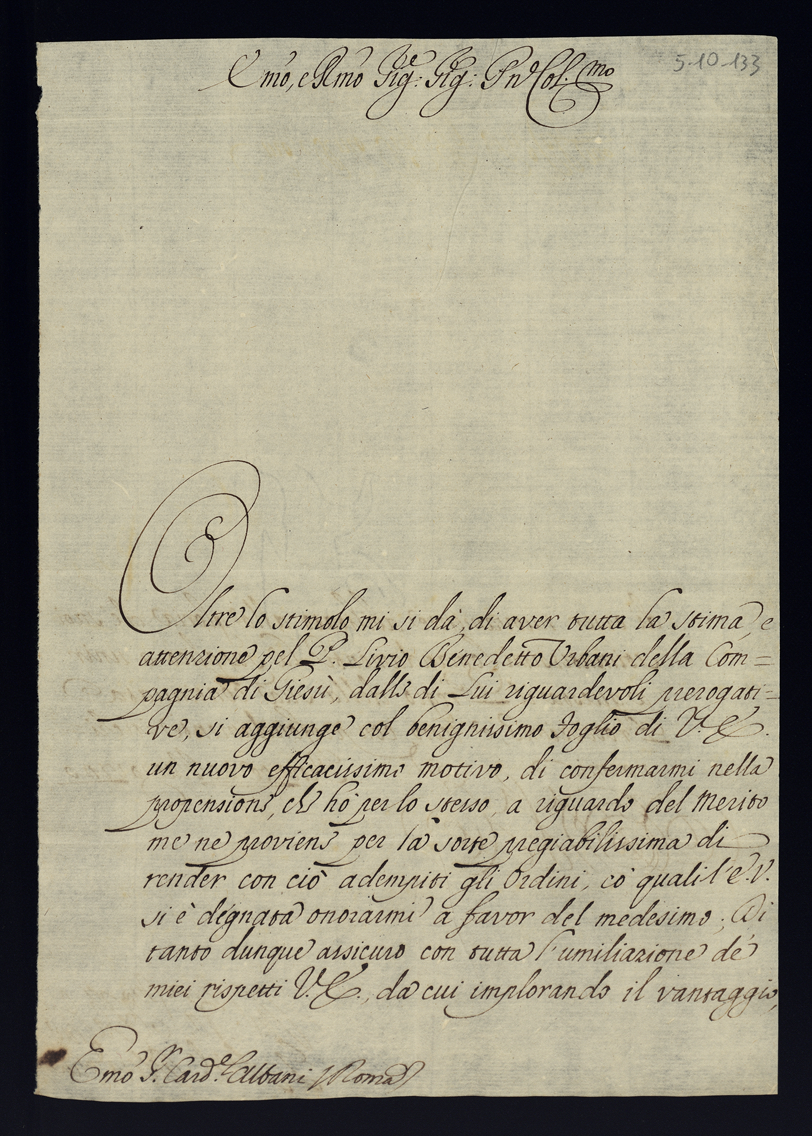 5-10-133
Emo, e Rmo Sig.re Sig.r Pne Col.mo
Oltre lo stimolo mi si dà di aver tutta la stima, e
attenzione pel P. Livio Benedetto Urbani della Com=
pagnia di Giesù, dalle di Lui riguardevoli prerogati=
ve, si aggiunge col benignissimo foglio di V. E.
un nuovo efficacissimo motivo, di confermarmi nella
propensione, che hò per lo stesso, a riguardo del merito
me ne proviene per la sorte pregiabilissima di
render con ciò adempiti gli Ordini, co' quali l'E. V.
si è degnata onorarmi a favor del medesimo; Di
tanto dunque assicuro con tutta l'umiliazione de'
miei rispetti V. E., da cui implorando il vantaggio,
Emo S.r Card.e Albani / Roma